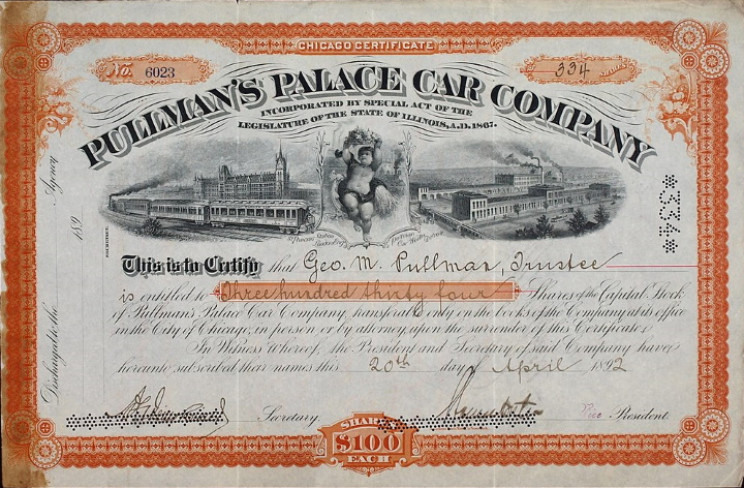 CHICAGO CERTIFICATE
No. 6023
334
PULLMAN'S PALACE CAR COMPANY
INCORPORATED BY SPECIAL ACT OF THE
LEGISLATURE OF THE STATE OF ILLINOIS, A.D. 1867.
*334*
This is to Certify that Geo. M. Pullman, Trustee
is entitled to Three hundred thirty four Shares of the Capital Stock
of Pullman's Palace Car Company, transferable only on the books of the Company at its office
in the City of Chicago, in person or by attorney, upon the surrender of this Certificate.
In Witness Whereof, the President and Secretary of said Company have
hereunto subscribed their names this 20th day of April 1892
Secretary. Vice President.
SHARES
$100
EACH
Agency
189